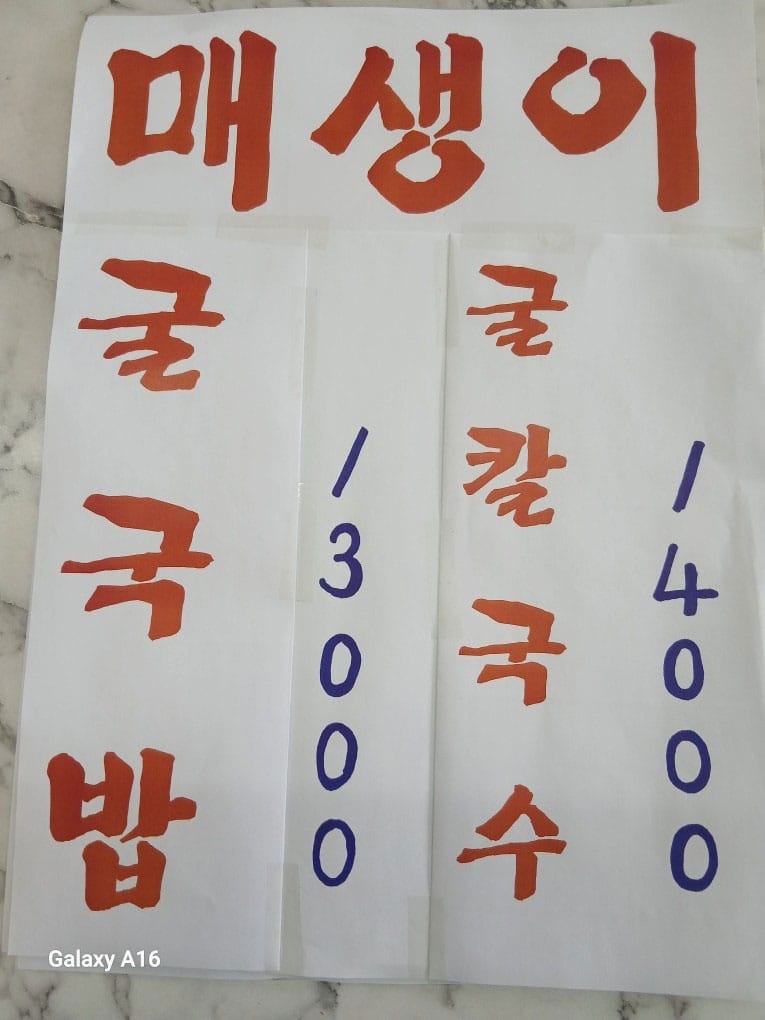 매생이
굴국밥
13000
굴칼국수
14000
Galaxy A16